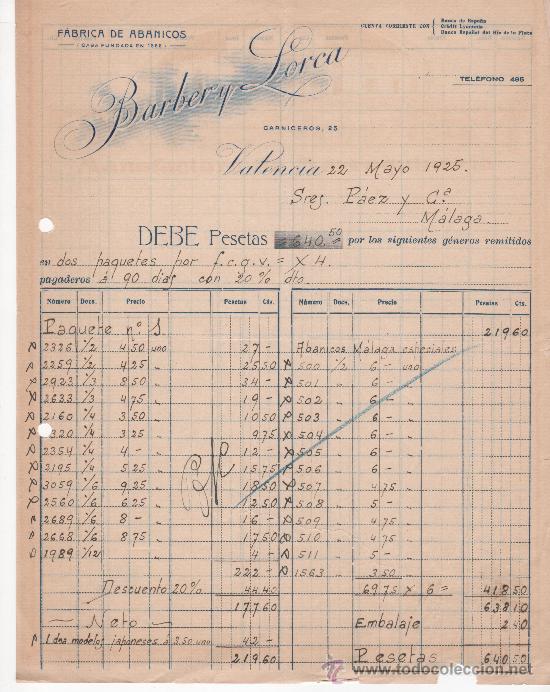 FÁBRICA DE ABANICOS
( CASA FUNDADA EN 1866 )
CUENTA CORRIENTE CON { Banco de España
Crédit Lyonnais
Banco Español del Río de la Plata
TELÉFONO 485
Barber y Lorca
CARNICEROS, 25
Valencia 22 Mayo 1925.
Sres. Páez y Cª
Málaga
DEBE Pesetas 640.50 por los siguientes géneros remitidos
en dos paquetes por f.c.g.v. = X 4.
pagaderos á 90 dias con 20% dto.
Número Docs. Precio Pesetas Cts.
Paquete nº S.
2326 1/2 4,50 uno 27 -
2259 1/2 4,25 " 25 50
2923 1/3 8,50 " 34 -
2633 1/3 4,75 " 19 -
2160 1/4 3,50 " 10 50
2320 1/4 3,25 " 9 75
2354 1/4 4,- " 12 -
2195 1/4 5,25 " 15 75
3059 1/6 9,25 " 18 50
2560 1/6 6,25 " 12 50
2689 1/6 8- " 16 -
2668 1/6 8,75 " 17 50
1989 1/12 4 -
222 -
Descuento 20% 44 40
177 60
— Neto —
1 dea modelos japoneses á 3.50 uno 42 -
219 60
Número Docs. Precio Pesetas Cts.
219 60
Abanicos Málaga especiales
500 1/2 6 - uno
501 " 6 - "
502 " 6 - "
503 " 6 - "
504 " 6 - "
505 " 6 - "
506 " 6 - "
507 " 4,75 "
508 " 5 - "
509 " 4,75 "
510 " 4,75 "
511 " 5 - "
1563 " 3,50
69,75 x 6 = 418 50
638 10
Embalaje 2 40
Pesetas 640 50
todocoleccion.net